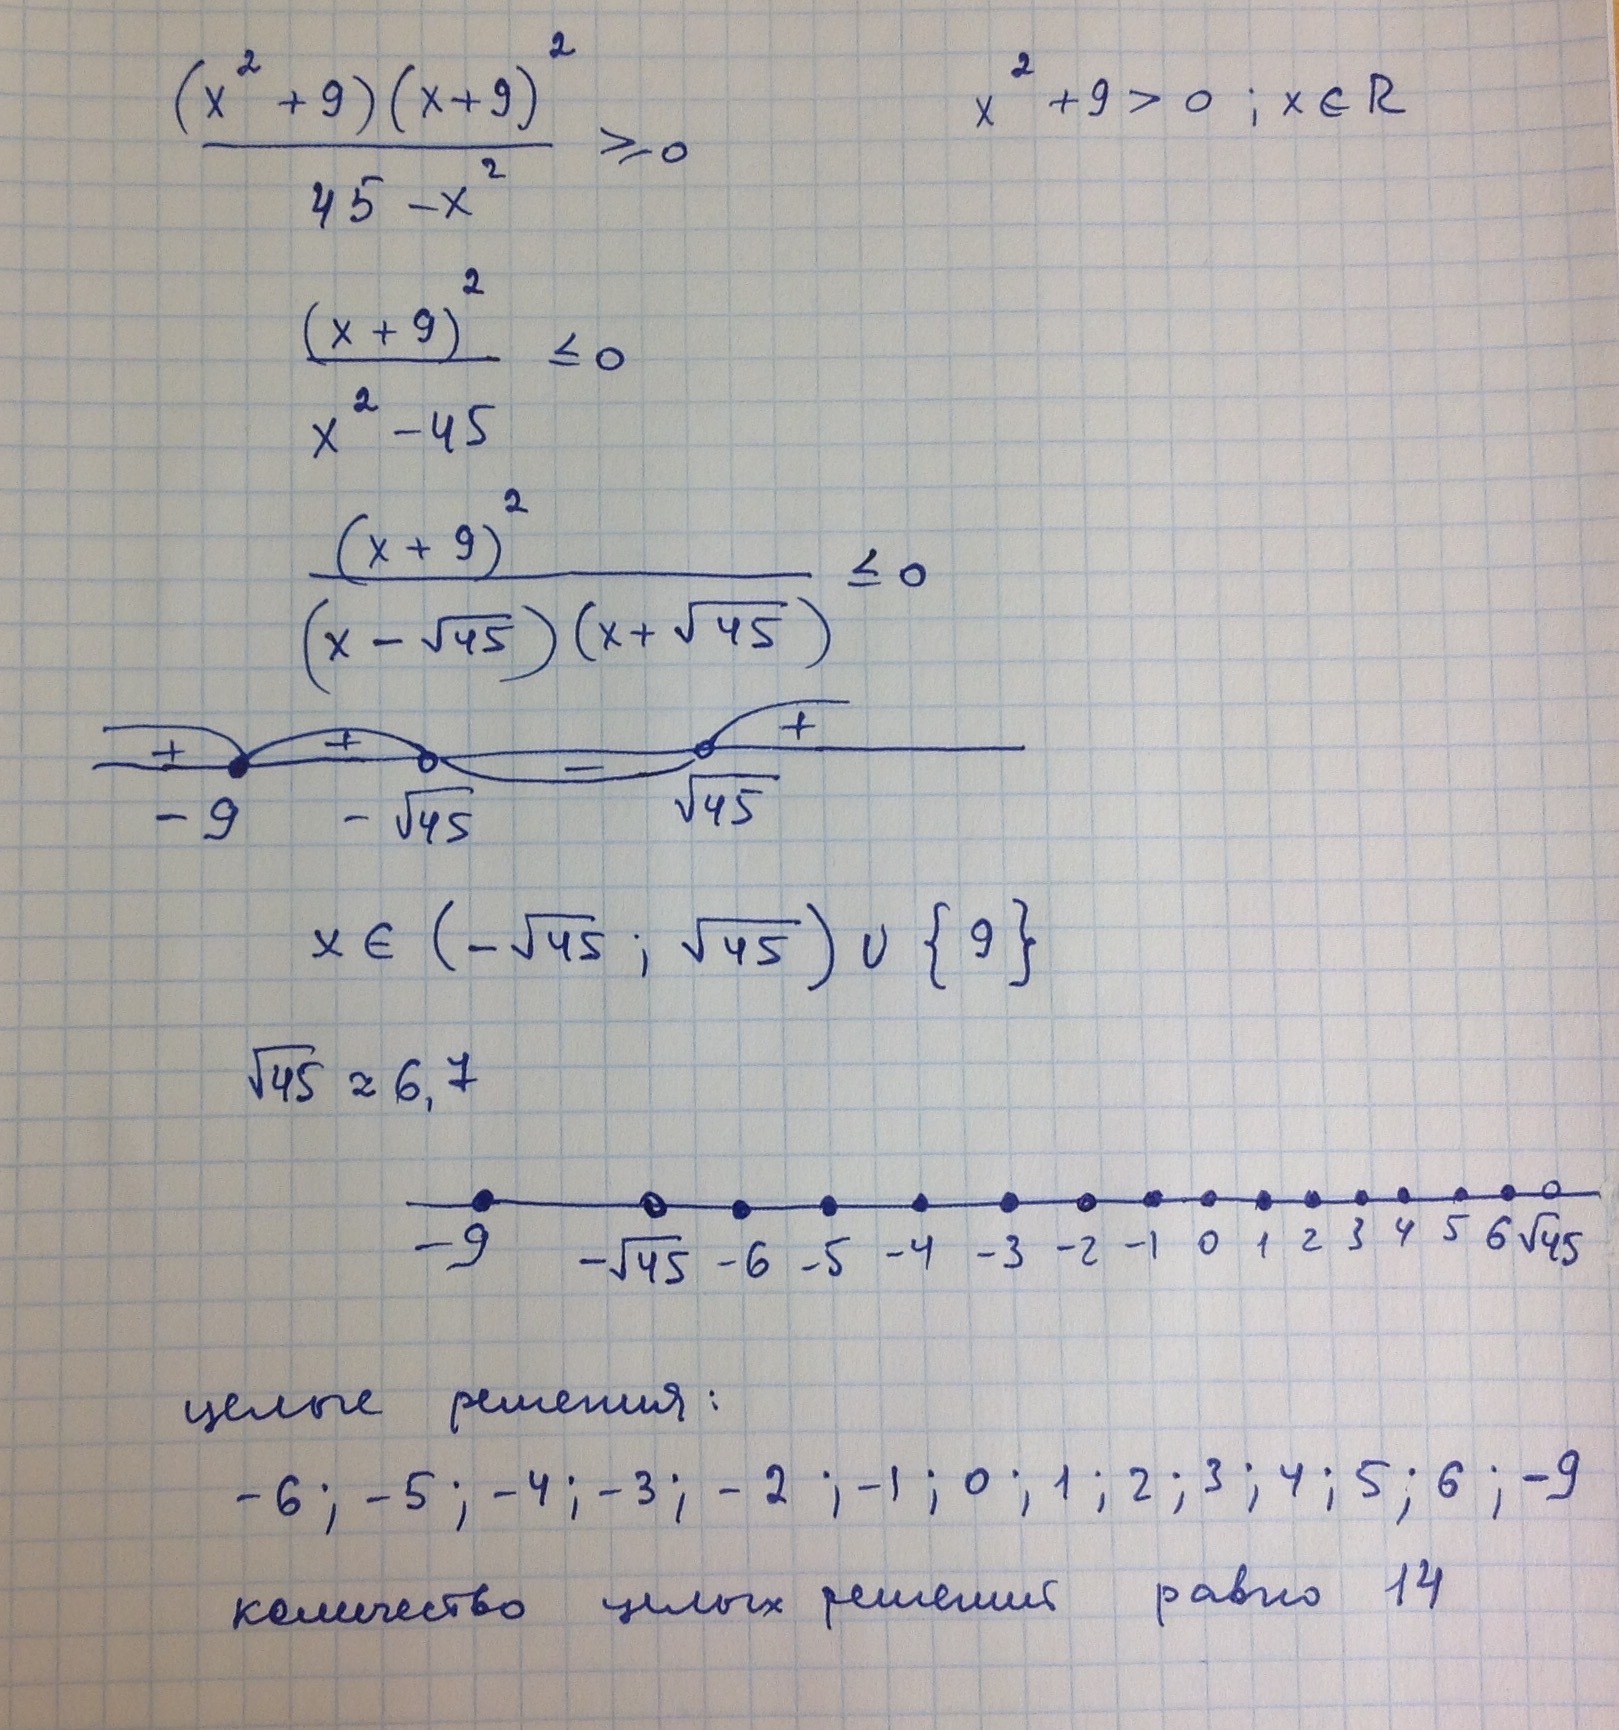 (x² + 9)(x + 9)² / 45 - x² ≥ 0
x² + 9 > 0 ; x ∈ R
(x + 9)² / x² - 45 ≤ 0
(x + 9)² / (x - √45)(x + √45) ≤ 0
+ + - +
-9 -√45 √45
x ∈ (-√45 ; √45) ∪ {9}
√45 ≈ 6,7
-9 -√45 -6 -5 -4 -3 -2 -1 0 1 2 3 4 5 6 √45
целые решения:
-6 ; -5 ; -4 ; -3 ; -2 ; -1 ; 0 ; 1 ; 2 ; 3 ; 4 ; 5 ; 6 ; -9
количество целых решений равно 14